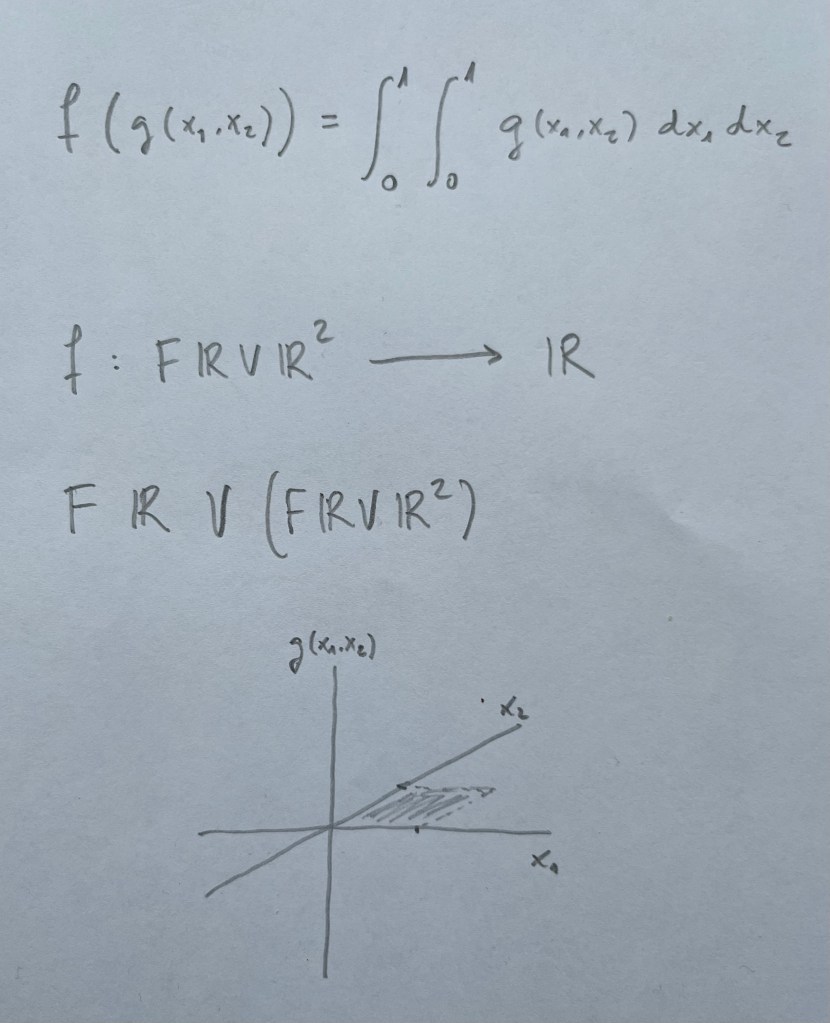 f (g(x₁,x₂)) = ∫₀¹ ∫₀¹ g(x₁,x₂) dx₁ dx₂
f : F ℝ V ℝ² ⟶ ℝ
F ℝ V (F ℝ V ℝ²)
g(x₁,x₂)
x₂
x₁